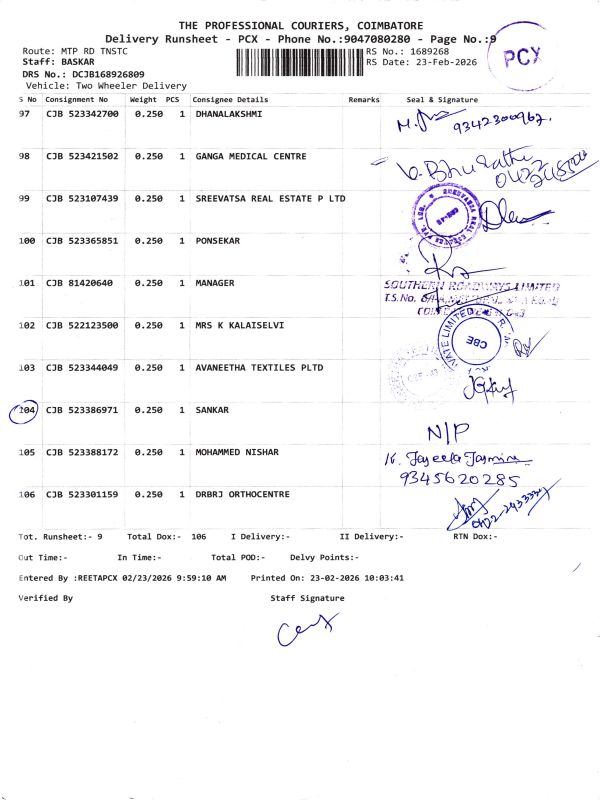 THE PROFESSIONAL COURIERS, COIMBATORE
Delivery Runsheet - PCX - Phone No.:9047080280 - Page No.:9
PCX
Route: MTP RD TNSTC
RS No.: 1689268
Staff: BASKAR
RS Date: 23-Feb-2026
DRS No.: DCJB168926809
Vehicle: Two Wheeler Delivery
S No Consignment No Weight PCS Consignee Details Remarks Seal & Signature
97 CJB 523342700 0.250 1 DHANALAKSHMI
9342300962.
98 CJB 523421502 0.250 1 GANGA MEDICAL CENTRE
0422
99 CJB 523107439 0.250 1 SREEVATSA REAL ESTATE P LTD
100 CJB 523365851 0.250 1 PONSEKAR
101 CJB 81420640 0.250 1 MANAGER
SOUTHERN ROADWAYS LIMITED
T.S.No.
102 CJB 522123500 0.250 1 MRS K KALAISELVI
CBE
103 CJB 523344049 0.250 1 AVANEETHA TEXTILES PLTD
104 CJB 523386971 0.250 1 SANKAR
N/P
105 CJB 523388172 0.250 1 MOHAMMED NISHAR
9345620285
106 CJB 523301159 0.250 1 DRBRJ ORTHOCENTRE
Tot. Runsheet:- 9 Total Dox:- 106 I Delivery:- II Delivery:- RTN Dox:-
Out Time:- In Time:- Total POD:- Delvy Points:-
Entered By :REETAPCX 02/23/2026 9:59:10 AM Printed On: 23-02-2026 10:03:41
Verified By Staff Signature